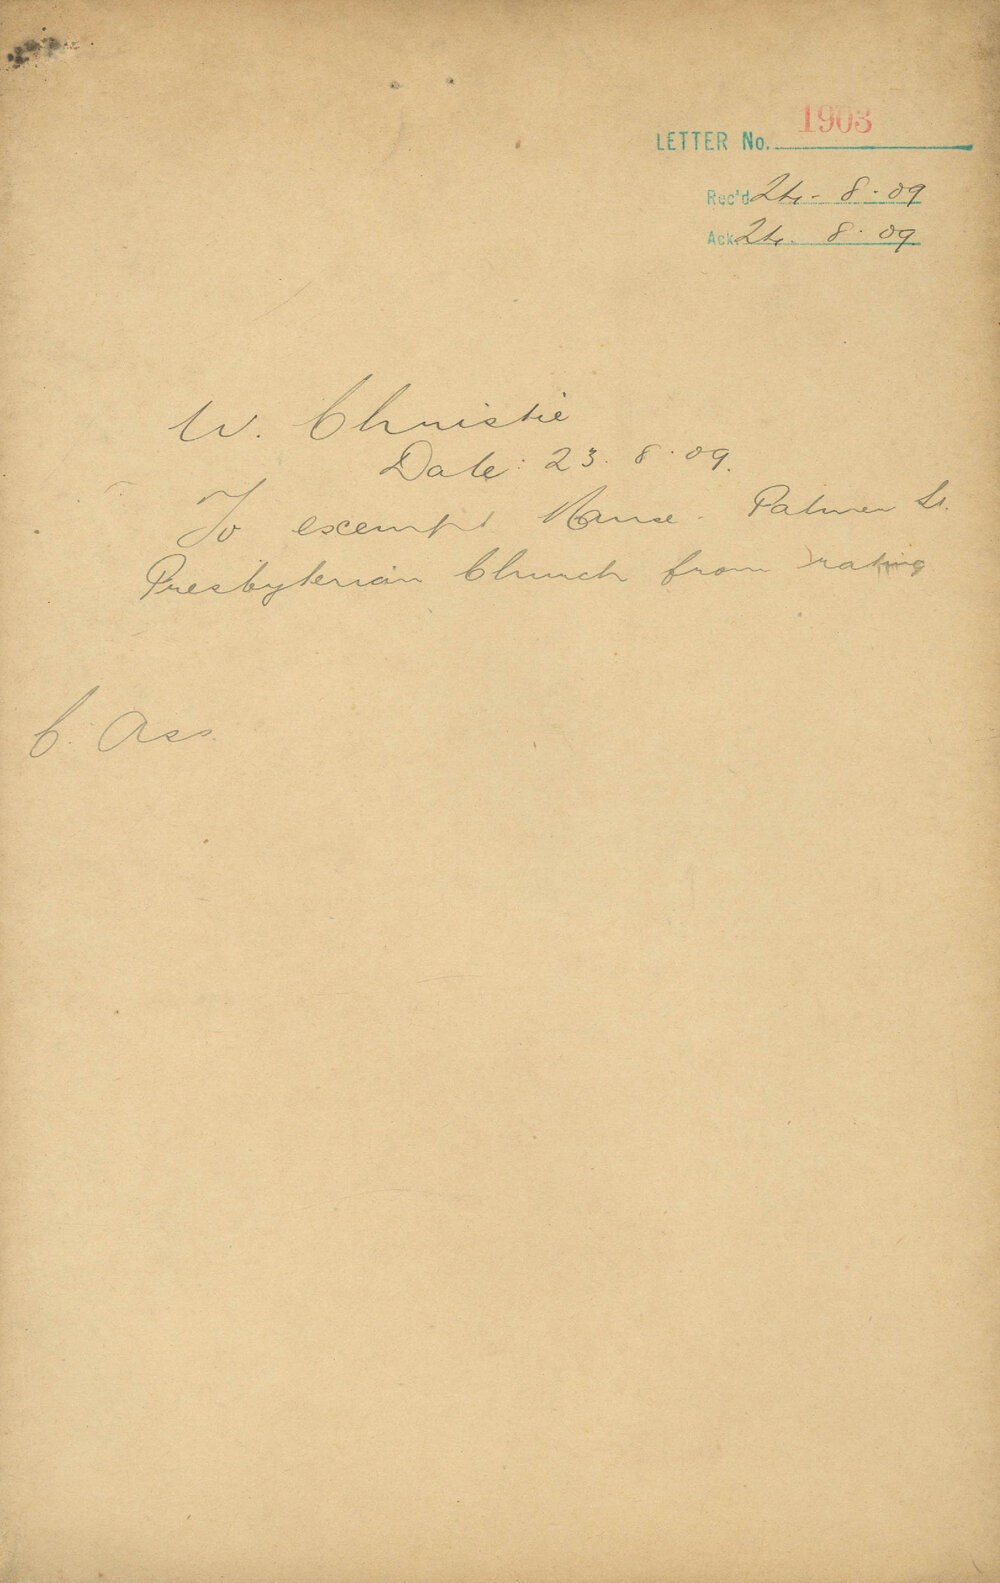 LETTER No. 1903
Rec'd 24. 8. 09
Ack 24. 8. 09
W. Christie
Date: 23. 8. 09.
To exempt Manse. Palmer St.
Presbyterian Church from rating
C. Ass.